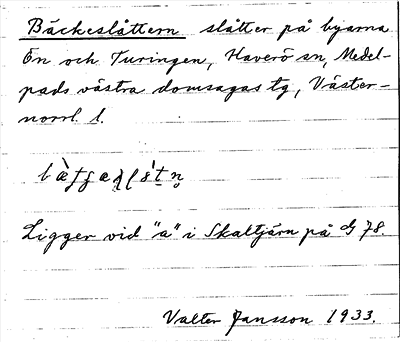 Bäckeslåttern slåtter på byarna
Ön och Turingen, Haverö sn, Medel-
pads västra domsagas tg, Väster-
norrl. l.
Ligger vid "a" i Skaltjärn på G 78.
Valter Jansson 1933.